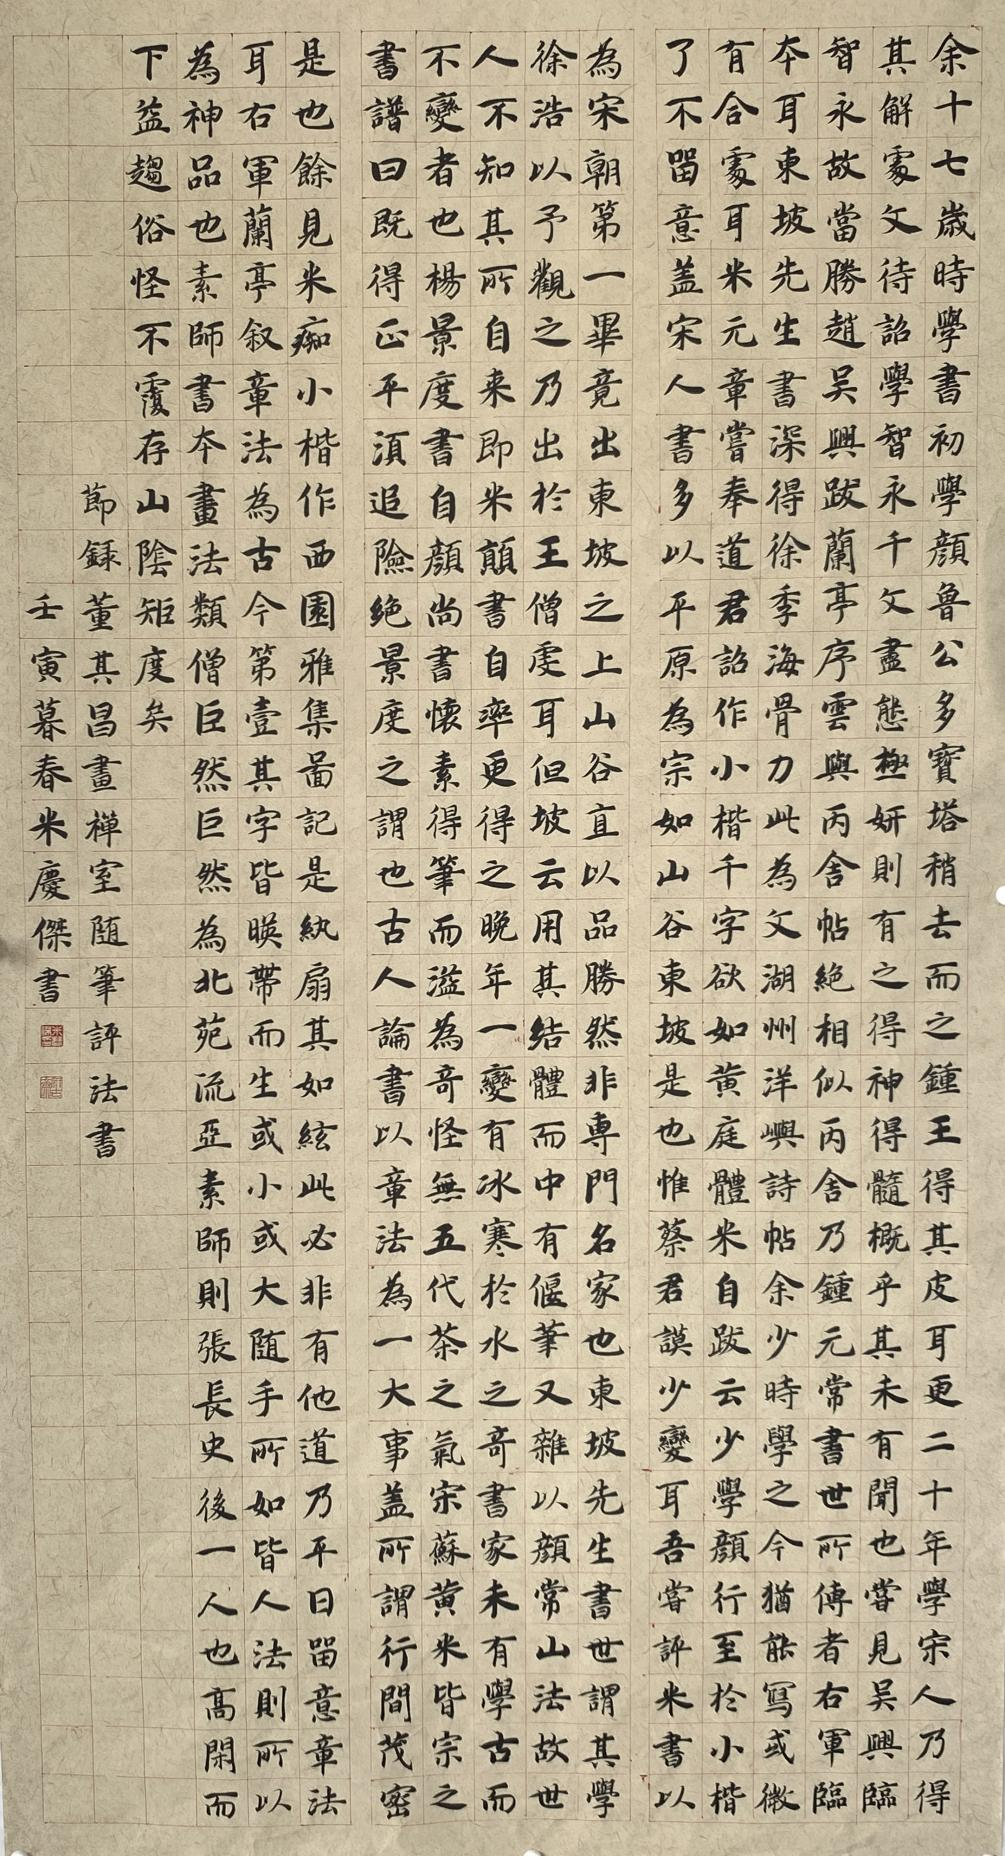 余十七歲時學書初學顏魯公多寶塔稍去而之鍾王得其皮耳更二十年學宋人乃得
其解處文待詔學智永千文盡態極妍則有之得神得髓概乎其未有聞也嘗見吳興臨
智永故當勝趙吳興跋蘭亭序雲與丙舍帖絕相似丙舍乃鍾元常書世所傳者右軍臨
本耳東坡先生書深得徐季海骨力此為文湖州洋嶼詩帖余少時學之今猶能寫或微
有合處耳米元章嘗奉道君詔作小楷千字欲如黃庭體米自跋云少學顏行至於小楷
了不留意蓋宋人書多以平原為宗如山谷東坡是也惟蔡君謨少變耳吾嘗評米書以
為宋朝第一畢竟出東坡之上山谷直以品勝然非專門名家也東坡先生書世謂其學
徐浩以予觀之乃出於王僧虔耳但坡云用其結體而中有偃筆又雜以顏常山法故世
人不知其所自來即米顛書自率更得之晚年一變有冰寒於水之奇書家未有學古而
不變者也楊景度書自顏尚書懷素得筆而溢為奇怪無五代茶之氣宋蘇黃米皆宗之
書譜曰既得正平須追險絕景度之謂也古人論書以章法為一大事蓋所謂行間茂密
是也餘見米痴小楷作西園雅集圖記是紈扇其如絃此必非有他道乃平日留意章法
耳右軍蘭亭叙章法為古今第壹其字皆映帶而生或小或大随手所如皆人法則所以
為神品也素師書本畫法類僧巨然巨然為北苑流亞素師則張長史後一人也高閑而
下益趨俗怪不覆存山陰矩度矣
節録董其昌畫禅室随筆評法書
壬寅暮春米慶傑書